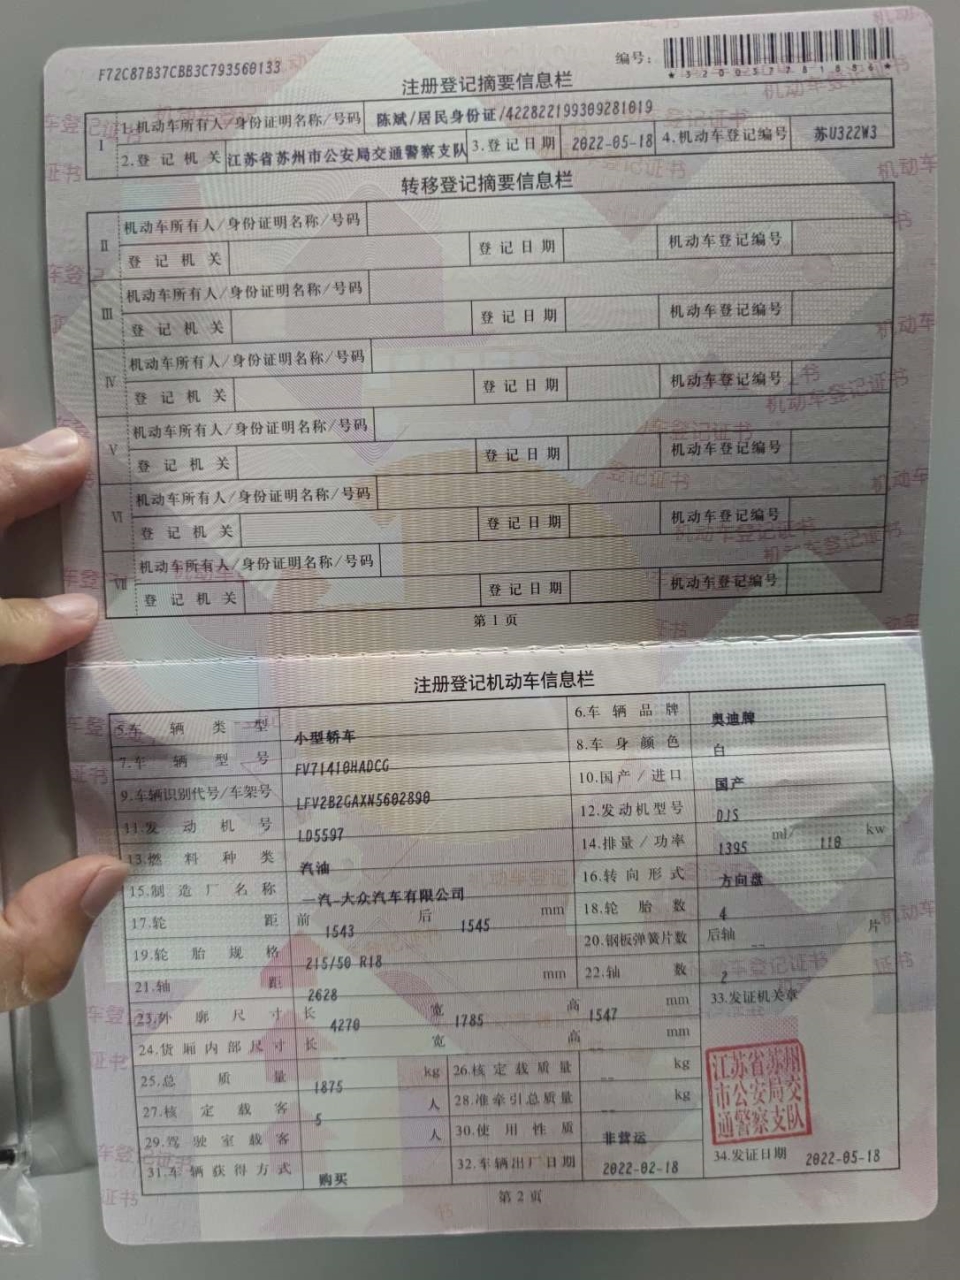 F72C87B37CBB3C793560133
编号:
*320037781086*
注册登记摘要信息栏
I 1.机动车所有人/身份证明名称/号码 陈斌/居民身份证/422822199309281019
2.登记机关 江苏省苏州市公安局交通警察支队 3.登记日期 2022-05-18 4.机动车登记编号 苏U322W3
转移登记摘要信息栏
II 机动车所有人/身份证明名称/号码
登记机关 登记日期 机动车登记编号
III 机动车所有人/身份证明名称/号码
登记机关 登记日期 机动车登记编号
IV 机动车所有人/身份证明名称/号码
登记机关 登记日期 机动车登记编号
V 机动车所有人/身份证明名称/号码
登记机关 登记日期 机动车登记编号
VI 机动车所有人/身份证明名称/号码
登记机关 登记日期 机动车登记编号
VII 机动车所有人/身份证明名称/号码
登记机关 登记日期 机动车登记编号
第1页
注册登记机动车信息栏
5.车辆类型 小型轿车 6.车辆品牌 奥迪牌
7.车辆型号 FV71410HADCG 8.车身颜色 白
9.车辆识别代号/车架号 LFV2B2GAXN5602890 10.国产/进口 国产
11.发动机号 LD5597 12.发动机型号 DJS
13.燃料种类 汽油 14.排量/功率 1395 ml/ 110 kw
15.制造厂名称 一汽-大众汽车有限公司 16.转向形式 方向盘
17.轮距 前 1543 后 1545 mm 18.轮胎数 4
19.轮胎规格 215/50 R18 20.钢板弹簧片数 后轴 -- 片
21.轴距 2628 mm 22.轴数 2
23.外廓尺寸 长 4270 宽 1785 高 1547 mm 33.发证机关章
24.货厢内部尺寸 长 -- 宽 -- 高 -- mm
25.总质量 1875 kg 26.核定载质量 -- kg
27.核定载客 5 人 28.准牵引总质量 -- kg
29.驾驶室载客 -- 人 30.使用性质 非营运
31.车辆获得方式 购买 32.车辆出厂日期 2022-02-18 34.发证日期 2022-05-18
江苏省苏州
市公安局交
通警察支队
第2页